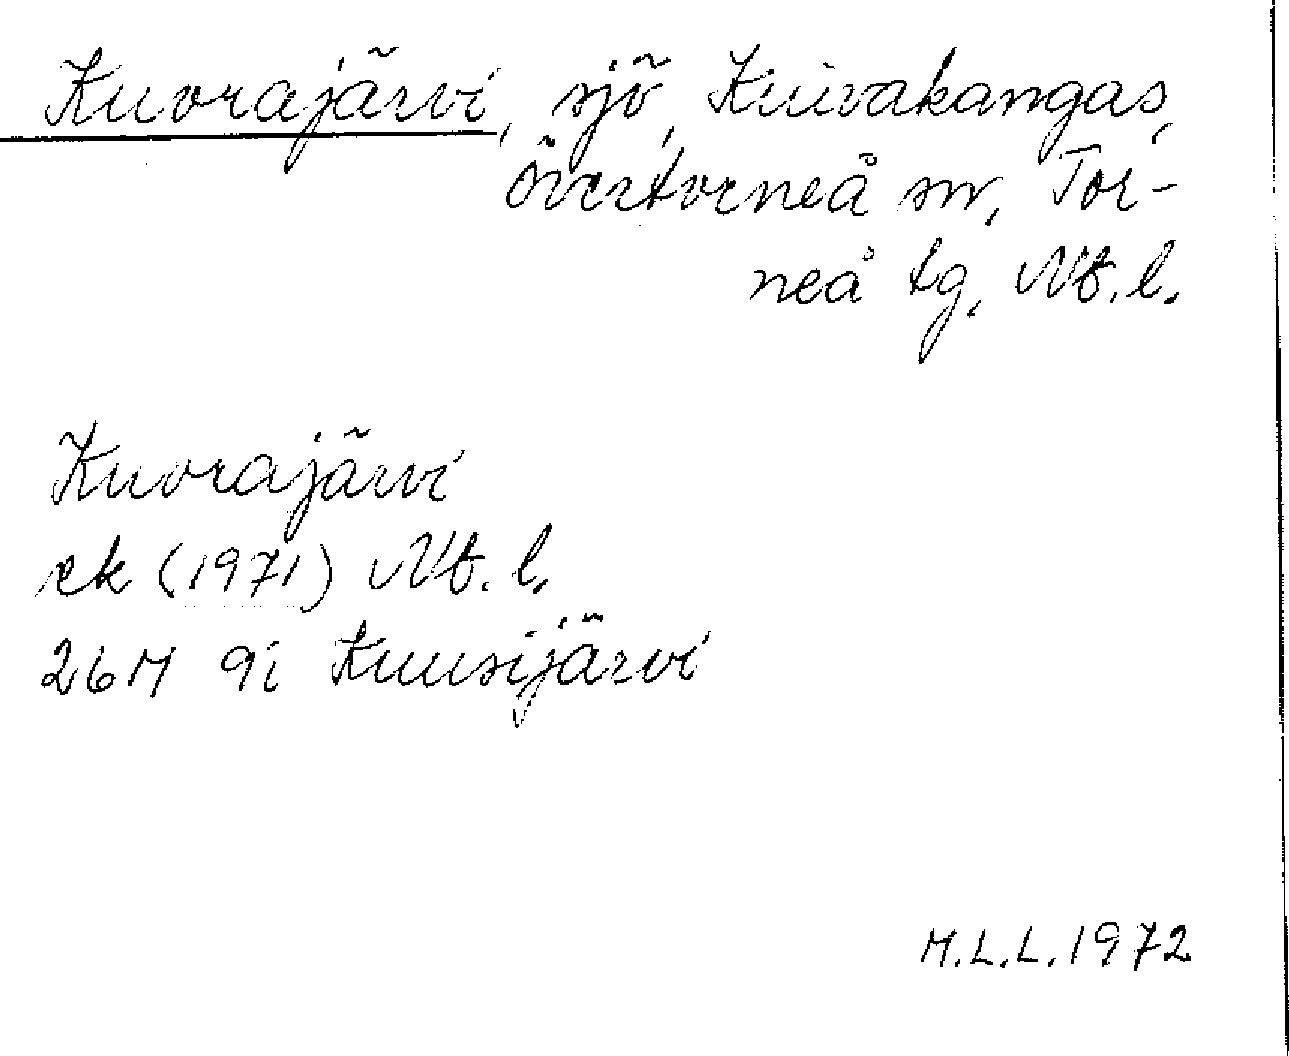 Kuorajärvi, sjö, Kuivakangas,
Övertorneå sn, Tor-
neå tg, Nb.l.
Kuorajärvi
ek (1971) Nb.l.
26M 9i Kuusijärvi
M.L.L. 1972